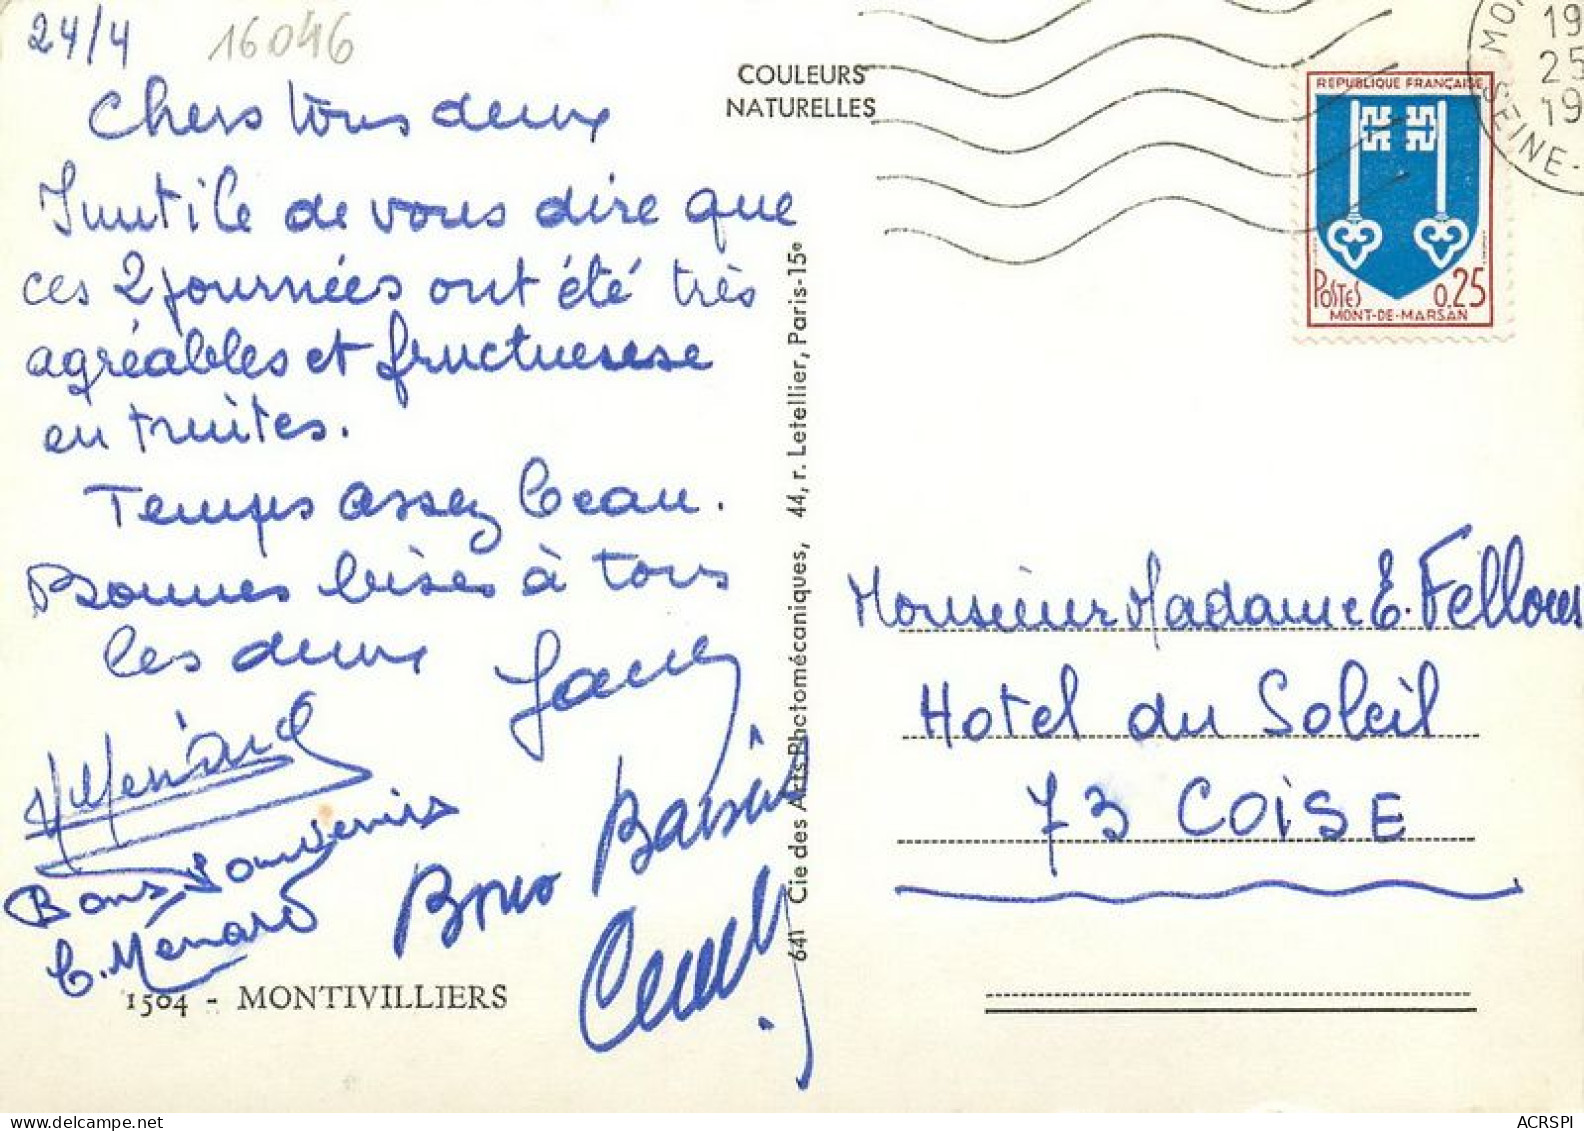 24/4
16046
Chers tous deux
Inutile de vous dire que
ces 2 journées ont été très
agréables et fructueuse
en truites.
Temps assez beau.
Bonnes bises à tous
les deux
Ménard
Bons souvenirs
Bons Baisers
C. Ménard
1504 - MONTIVILLIERS
COULEURS
NATURELLES
641 Cie des Arts Photomécaniques, 44, r. Letellier, Paris-15e
REPUBLIQUE FRANÇAISE
POSTES 0.25
MONT-DE-MARSAN
19
25
19
SEINE-
Monsieur Madame E. Fellous
Hotel du Soleil
73 COISE
ACRSPI